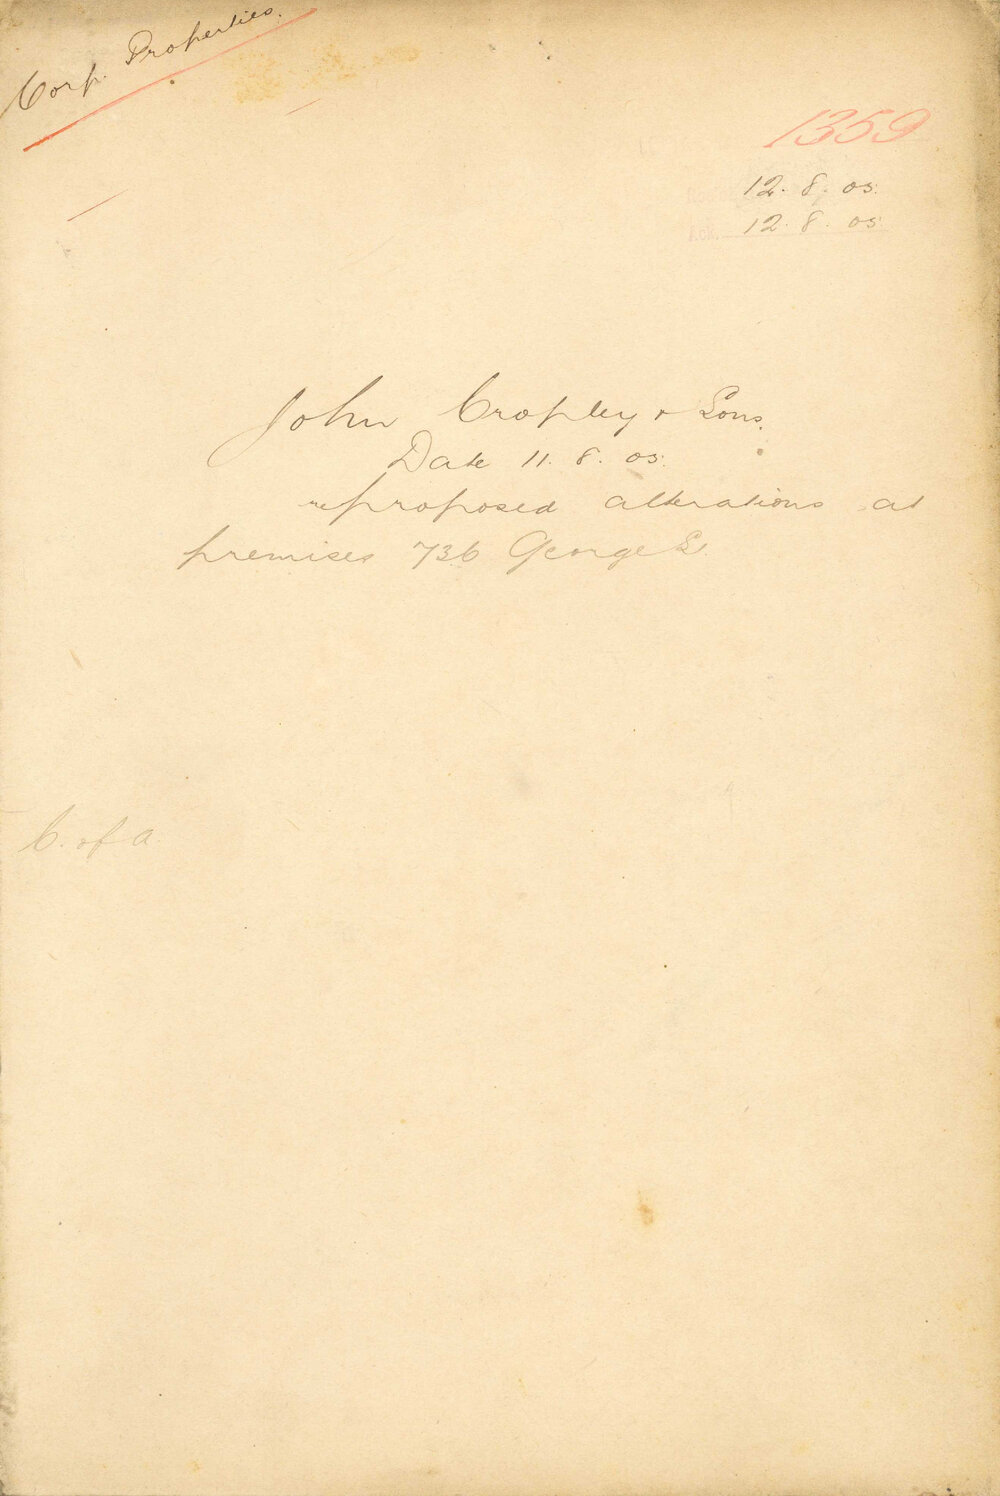 Corp. Properties.
1359
12. 8. 05.
Ack. 12. 8. 05
John Cropley & Sons.
Date 11. 8. 05.
re proposed alterations at
premises 736 George St.
C. of A.